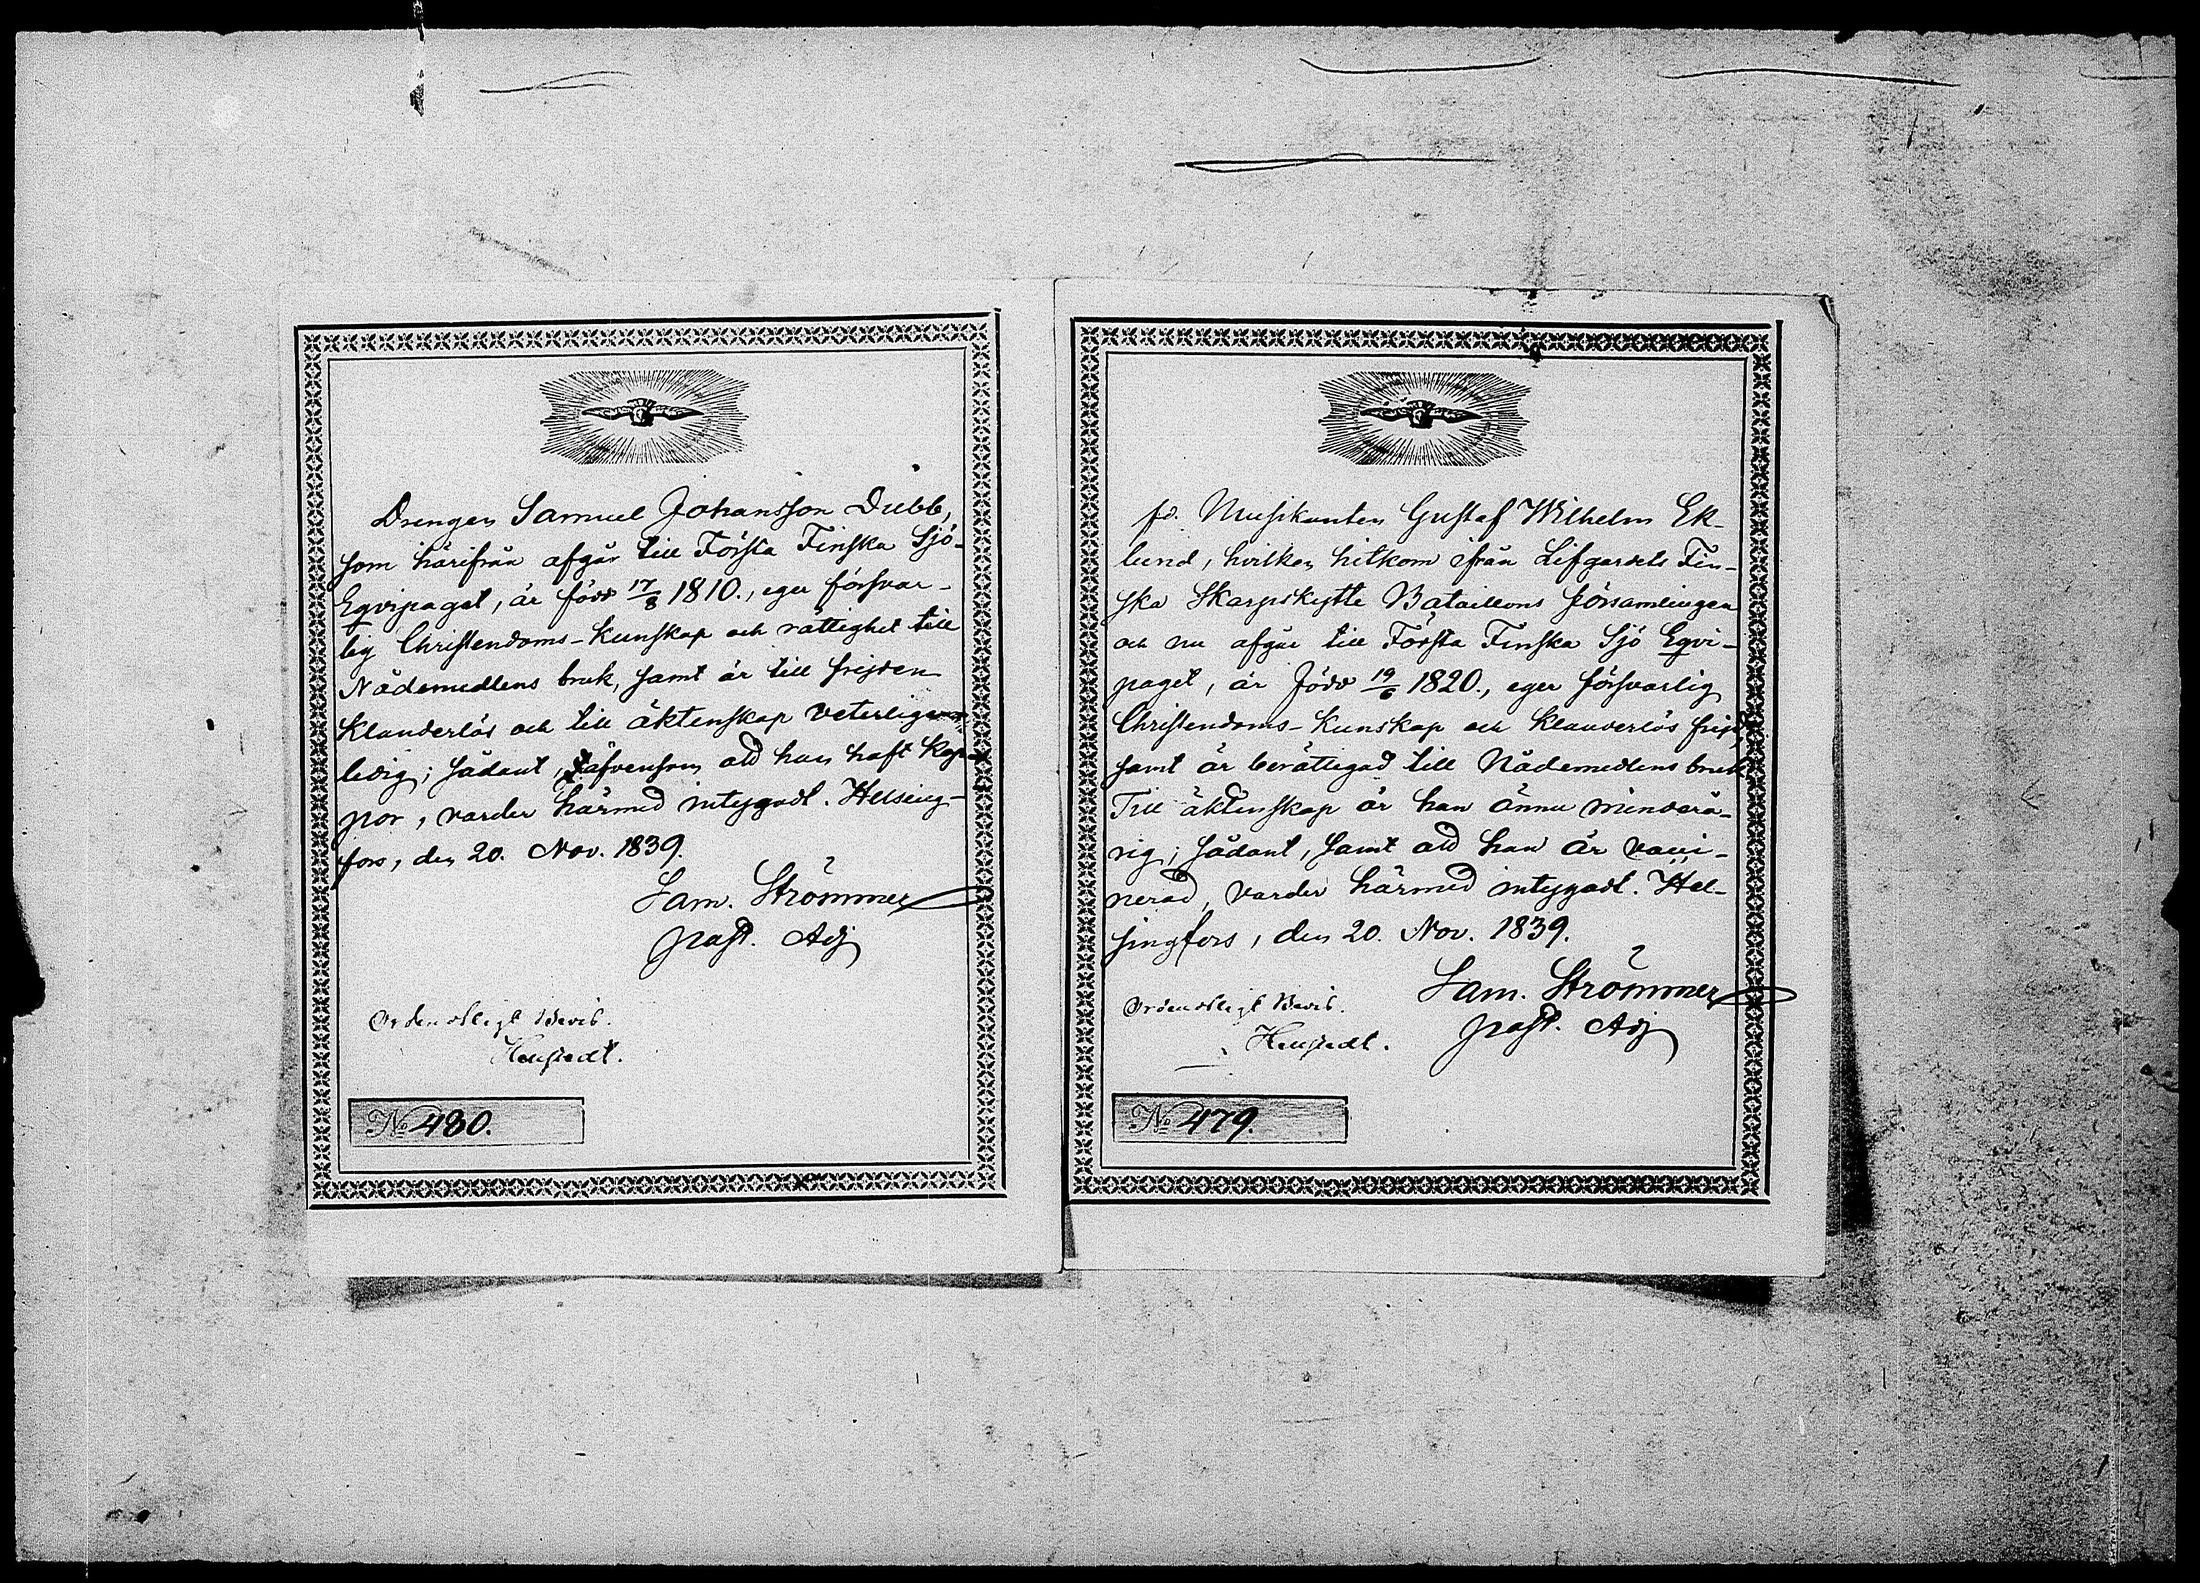 Drengen Samuel Johansson Dubb,
som härifrån afgår till Första Finska Sjö-
Eqvipaget, är född 17/8 1810., eger försvar-
lig Christendoms-kunskap och rättighet till
Nådemedlens bruk, samt är till frejden
klanderlös och till äktenskap veterligen
ledig; sådant, äfvensom att han haft kop-
por, varder härmed intygadt. Helsing-
fors, den 20. Nov. 1839.
Sam. Strömmer
past. Adj
Ordendtligt Bevis.
No 480.
fd. Musikanten Gustaf Wilhelm Ek-
lund, hvilken hitkom ifrån Lifgardets Fin-
ska Skarpskytte Bataillons församlingen
och nu afgår till Första Finska Sjö Eqvi-
paget, är född 19/6 1820., eger försvarlig
Christendoms-kunskap och klanderlös frejd,
samt är berättigad till Nådemedlens bruk.
Till äktenskap är han ännu minderå-
rig; sådant, samt att han är vacci-
nerad, varder härmed intygadt. Hel-
singfors, den 20. Nov. 1839.
Sam. Strömmer
past. Adj
Ordendtligt Bevis.
No 479.